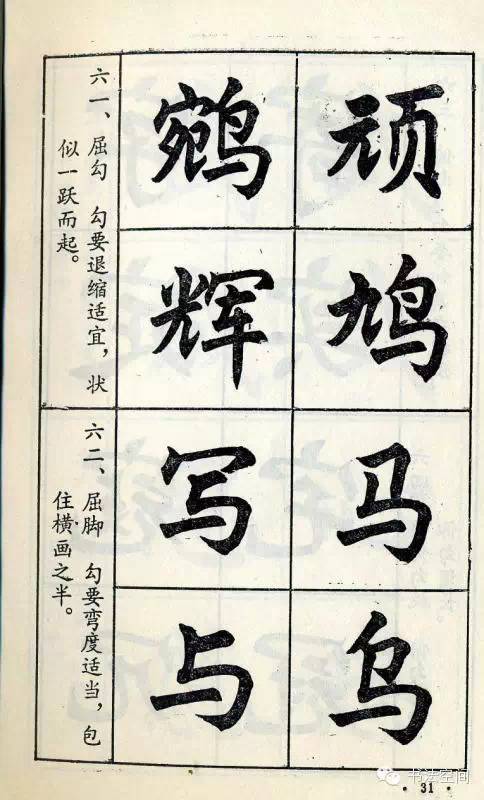 顽
鸠
马
乌
鹓
辉
写
与
六一、屈勾 勾要退缩适宜，状
似一跃而起。
六二、屈脚 勾要弯度适当，包
住横画之半。
·31·
书法空间